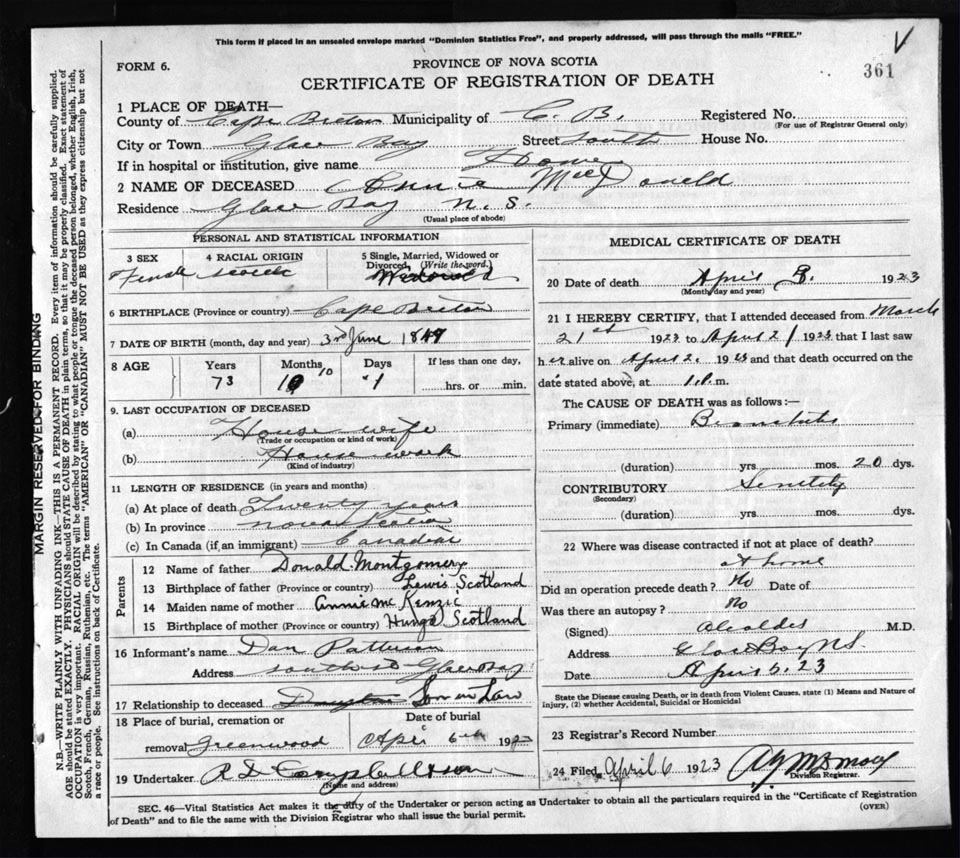 This form if placed in an unsealed envelope marked "Dominion Statistics Free", and properly addressed, will pass through the mails "FREE."
V
FORM 6.
PROVINCE OF NOVA SCOTIA
361
CERTIFICATE OF REGISTRATION OF DEATH
1 PLACE OF DEATH—
County of Cape Breton Municipality of C. B. Registered No.
(For use of Registrar General only)
City or Town Glace Bay Street South House No.
If in hospital or institution, give name Home
2 NAME OF DECEASED Annie McDonald
Residence Glace Bay N. S.
(Usual place of abode)
PERSONAL AND STATISTICAL INFORMATION
3 SEX 4 RACIAL ORIGIN 5 Single, Married, Widowed or Divorced, (Write the word.)
Female Scotch Widowed
6 BIRTHPLACE (Province or country) Cape Breton
7 DATE OF BIRTH (month, day and year) 3rd June 1849
8 AGE Years Months Days If less than one day,
73 10 10 1 hrs. or min.
9. LAST OCCUPATION OF DECEASED
(a) House wife
(Trade or occupation or kind of work)
(b) House work
(Kind of industry)
11 LENGTH OF RESIDENCE (in years and months)
(a) At place of death Twenty years
(b) In province Nova Scotia
(c) In Canada (if an immigrant) Canadian
Parents
12 Name of father Donald Montgomery
13 Birthplace of father (Province or country) Lewis Scotland
14 Maiden name of mother Annie Mc Kenzie
15 Birthplace of mother (Province or country) Scotland
16 Informant's name Dan Patterson
Address South St Glace Bay
17 Relationship to deceased Daughter Son in Law
18 Place of burial, cremation or removal Greenwood
Date of burial
Apr 6th 192
19 Undertaker R D Campbell & Son
(Name and address)
MEDICAL CERTIFICATE OF DEATH
20 Date of death April 1923
(Month, day and year)
21 I HEREBY CERTIFY, that I attended deceased from March
21st 1923 to April 2 1923 that I last saw
her alive on April 2. 1923 and that death occurred on the
date stated above, at 1. P. m.
The CAUSE OF DEATH was as follows:—
Primary (immediate) Bronchitis
(duration) yrs. mos. 20 dys.
CONTRIBUTORY Senility
(Secondary)
(duration) yrs. mos. dys.
22 Where was disease contracted if not at place of death?
at home
Did an operation precede death? No Date of
Was there an autopsy? No
(Signed) M.D.
Address Glace Bay N.S.
Date April 5, 23
State the Disease causing Death, or in death from Violent Causes, state (1) Means and Nature of
injury, (2) whether Accidental, Suicidal or Homicidal
23 Registrar's Record Number
24 Filed April 6 1923
Division Registrar.
SEC. 46—Vital Statistics Act makes it the duty of the Undertaker or person acting as Undertaker to obtain all the particulars required in the "Certificate of Registration
of Death" and to file the same with the Division Registrar who shall issue the burial permit.
(OVER)
MARGIN RESERVED FOR BINDING
N.B.—WRITE PLAINLY WITH UNFADING INK—THIS IS A PERMANENT RECORD. Every item of information should be carefully supplied.
AGE should be stated EXACTLY. PHYSICIANS should STATE CAUSE OF DEATH in plain terms, so that it may be properly classified. Exact statement of
OCCUPATION is very important. RACIAL ORIGIN will be described by stating to what people or tongue the deceased person belonged, whether English, Irish,
Scotch, French, German, Russian, Ruthenian, etc. The terms "AMERICAN" OR "CANADIAN" MUST NOT BE USED as they express citizenship but not
a race or people. See instructions on back of Certificate.